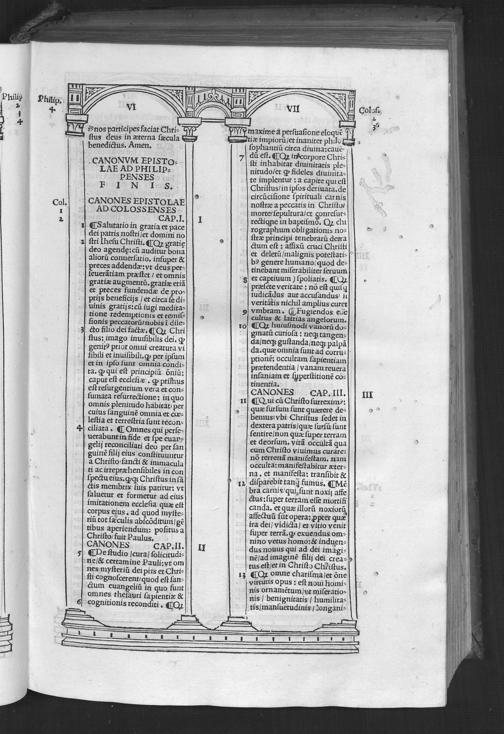 Philip.
VI
nos participes faciat Chri-
stus deus in æterna sæcula
benedictus. Amen.
CANONVM EPISTO-
LAE AD PHILIP-
PENSES
FINIS.
CANONES EPISTOLAE
AD COLOSSENSES
CAP. I.
Col.
1
2
I
1 ¶ Salutatio in gratia et pace
dei patris nostri/et domini no
2 stri Ihesu Christi. ¶ Qꝫ gratię
deo agendę: cū auditur bona
aliorū conuersatio. insuper &
preces addendæ: vt deus per-
seuerātiam præstet / et omnis
gratiæ augmentū. gratiæ etiā
et preces fundendæ de pro-
prijs beneficijs / et circa se di-
uinis gratijs: cū iugi medita-
tione redemptionis et remis-
sionis peccatorū/nobis ī dile-
3 cto filio dei factæ. ¶ Qꝫ Chri
stus; imago inuisibilis dei.
genitꝰ prior omni creatura vi
sibili et inuisibili. per ipsum
et in ipso sunt omnia condi-
ta. qui est principiū oīnū:
caput est ecclesiæ. primus
est resurgentium vera et con-
sumata resurrectione: in quo
omnis plenitudo habitat: per
cuius sanguinē omnia et cæ-
lestia et terrestria sunt recon-
4 ciliata. ¶ Omnes qui perse-
uerabunt in fide et spe euan-
gelij reconciliati deo per san
guinē filij eius constituuntur
a Christo sancti & immacula
ti ac irreprehensibiles in con-
spectu eius. qꝫ Christus in sā
ctis membris suis patitur: vt
saluetur et formetur ad eius
imitationem ecclesia quæ est
corpus eius. ad quod myste-
riū tot sæculis abscōditum/gē
tibus aperiendum: positus a
Christo/fuit Paulus.
CANONES CAP. II.
II
5 ¶ De studio/cura/solicitudi-
ne/& certamine Pauli: vt om
nes mysteriū dei pris et Chri-
sti cognoscerent: quod est san-
ctum euangeliū in quo sunt
omnes thesauri sapientiæ &
6 cognitionis reconditi. ¶ Qꝫ
VII
Colos.
2
3
maxime a persuasione eloquē
tiæ impiorū/et inaniter philo
sophantiū circa diuina: cauē-
7 dū est. ¶ Qꝫ in corpore Chri-
sti inhabitat diuinitatis ple-
nitudo/et fideles diuinita-
te implentur: a capite qui est
Christus/in ipsos deriuata. de
circūcisione spirituali carnis
nostræ a peccatis in Christo/
morte/sepultura/et conresur-
rectione in baptismo. Qꝫ chi
rographum obligationis no-
stræ principi tenebrarū dele-
ctum est: affixū cruci Christi
et deletū/malignis potestati-
bꝰ genere humano/quod de-
tinebant miserabiliter seruum
8 et captiuum/spoliatis. ¶ Qꝫ
præsete veritate: nō est qui
iudicādus aut accusandus ī
veritatis nichil amplius curet
9 vmbram. ¶ Fugiendos eē
cultus & latrias angelorum.
10 ¶ Qꝫ huiusmodi vanorū do-
gmatū curiosa: neqꝫ tangen-
da/neqꝫ gustanda. neqꝫ palpā
da. quæ omnia sunt ad corru-
ptionē: occultam sapientiam
prætendentia / vanam reuera
insaniam et superstitionē con-
tinentia.
CANONES CAP. III.
III
11 ¶ Qꝫ qui cū Christo surrexim/:
quæ sursum sunt quærere de-
bemus: vbi Christus sedet in
dextera patris/quæ sursū sunt
sentire/non quæ super terram
et deorsum. vitā occultā qua
cum Christo viuimus curare:
nō terrenā manifestam. nam
occulta: manifestabitur æter-
na. et manifesta: transibit &
12 disparebit tanqꝫ fumus. ¶ Mē
bra carnis/ qui sunt noxij affe
ctus: super terram esse mortifi
canda. et quæ illorū noxiorū
affectuū sūt opera: propter quæ
ira dei/vindicta/et vltio venit
super terrā. exuendus om-
nino vetus homo: & induen-
dus nouus qui ad dei imagi-
nē/ad imaginē filij dei crea-
tus est/et in Christo Christus.
13 ¶ Qꝫ omne charisma/et ōne
virtutis opus: est noui homi-
nis ornamētum/vt miseratio-
nis / benignitatis / humilita-
tis/mansuetudinis/longani-